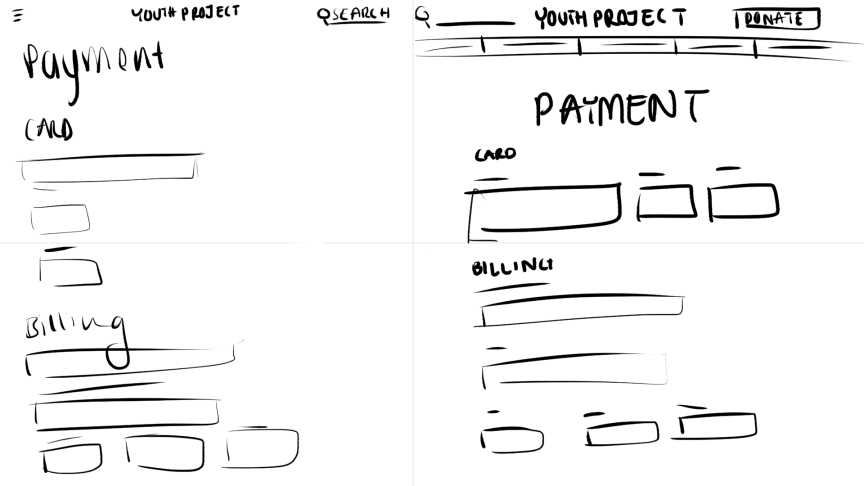 YOUTH PROJECT
SEARCH
Payment
CARD
Billing
YOUTH PROJECT
DONATE
PAYMENT
CARD
BILLING